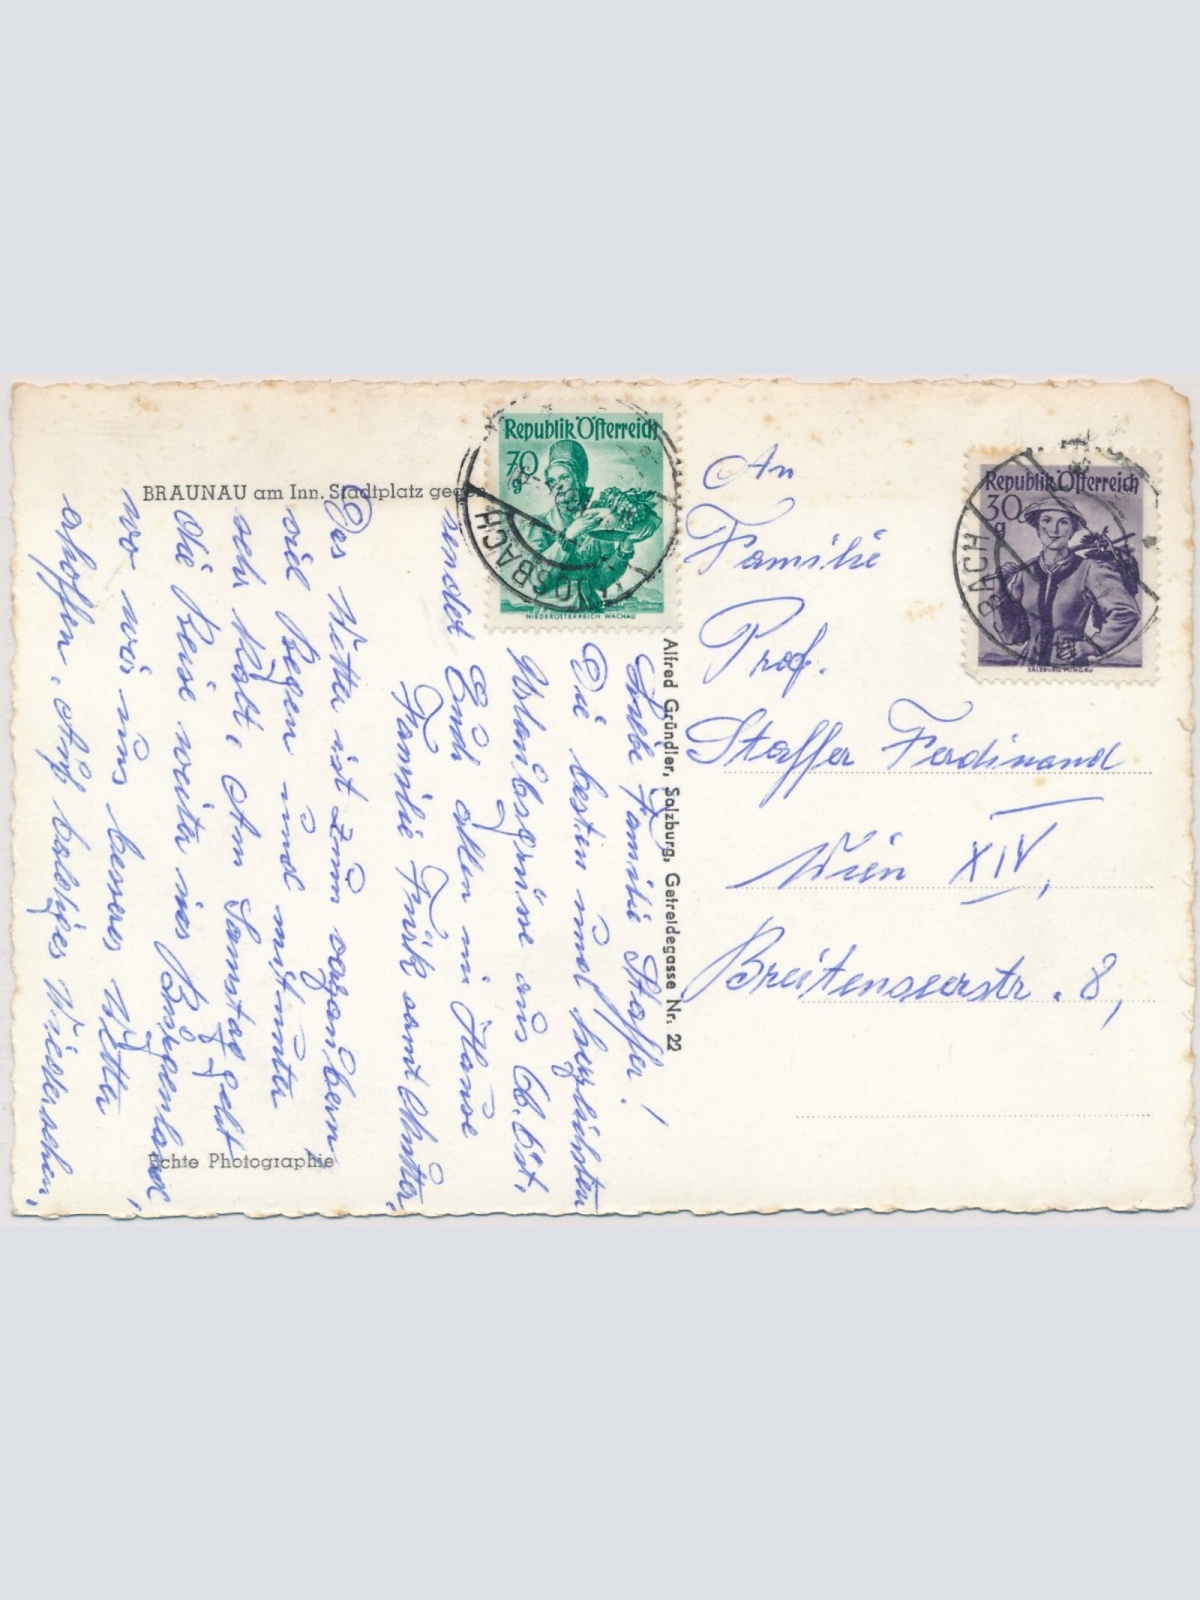 BRAUNAU am Inn. Stadtplatz gegen
Republik Österreich
70
g
NIEDERÖSTERREICH WACHAU
Republik Österreich
30
g
SALZBURG PONGAU
BACH
An
Familie
Prof.
Staffer Ferdinand
Wien XIV,
Breitenseerstr. 8,
Alfred Gründler, Salzburg, Getreidegasse Nr. 22
Liebe Familie Staffer!
Die besten und herzlichsten
Urlaubsgrüße aus
sendet Euch allen im Hause
Familie Fürk samt Mutter,
Das Wetter ist zum
viel Regen und mitunter
sehr kalt, Am Samstag geht
die Reise weiter ins Burgenland
wo wir uns besseres Wetter
erhoffen, Auf baldiges Wiedersehen,
Echte Photographie